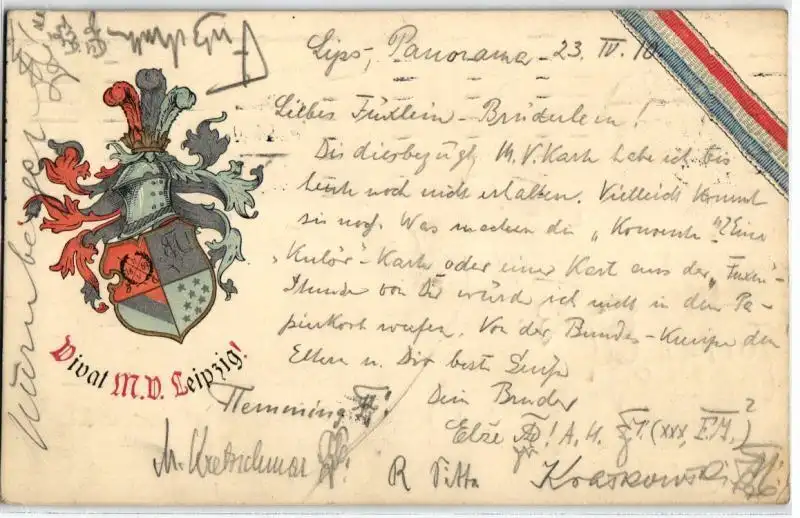 Lips, Panorama 23. IV. 10.
Liebes Füxlein-Brüderlein!
Die diesbezügl. M.V. Karte habe ich bis
heute noch nicht erhalten. Vielleicht kommt
sie noch. Was machen die „Konvente"? Eine
„Kulör"-Karte oder eine Karte aus der „Fuxen"-
Stunde von Dir würde ich nicht in den Pa-
pierkorb werfen. Von der Bundes-Kneipe den
Eltern u. Dir beste Grüße
Dein Bruder
A. H.
Vivat M.V. Leipzig!
Flemming
M. Kretschmar
R
Kraskowski
Nürnberger